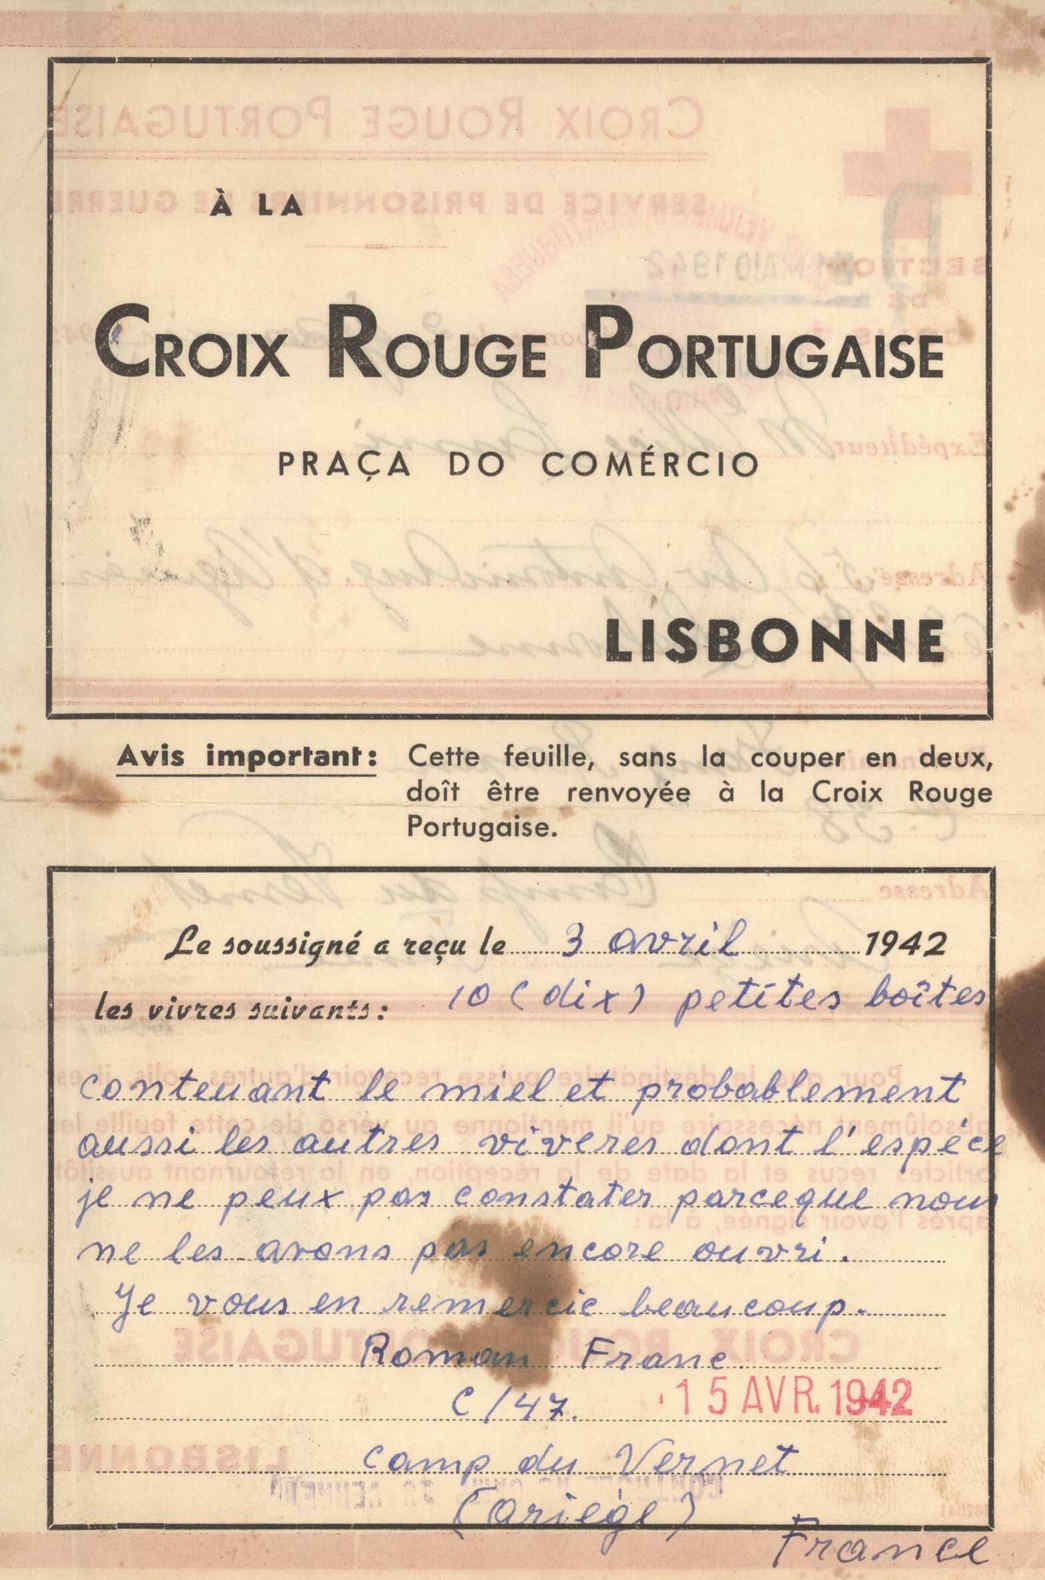 À LA
CROIX ROUGE PORTUGAISE
PRAÇA DO COMÉRCIO
LISBONNE
Avis important: Cette feuille, sans la couper en deux,
doît être renvoyée à la Croix Rouge
Portugaise.
Le soussigné a reçu le 3 avril 1942
les vivres suivants: 10 (dix) petites boîtes
contenant le miel et probablement
aussi les autres viveres dont l'espéce
je ne peux pas constater parceque nous
ne les avons pas encore ouvri.
Je vous en remercie beaucoup.
Roman Franc
C/47.
15 AVR. 1942
Camp du Vernet
(Ariège)
France